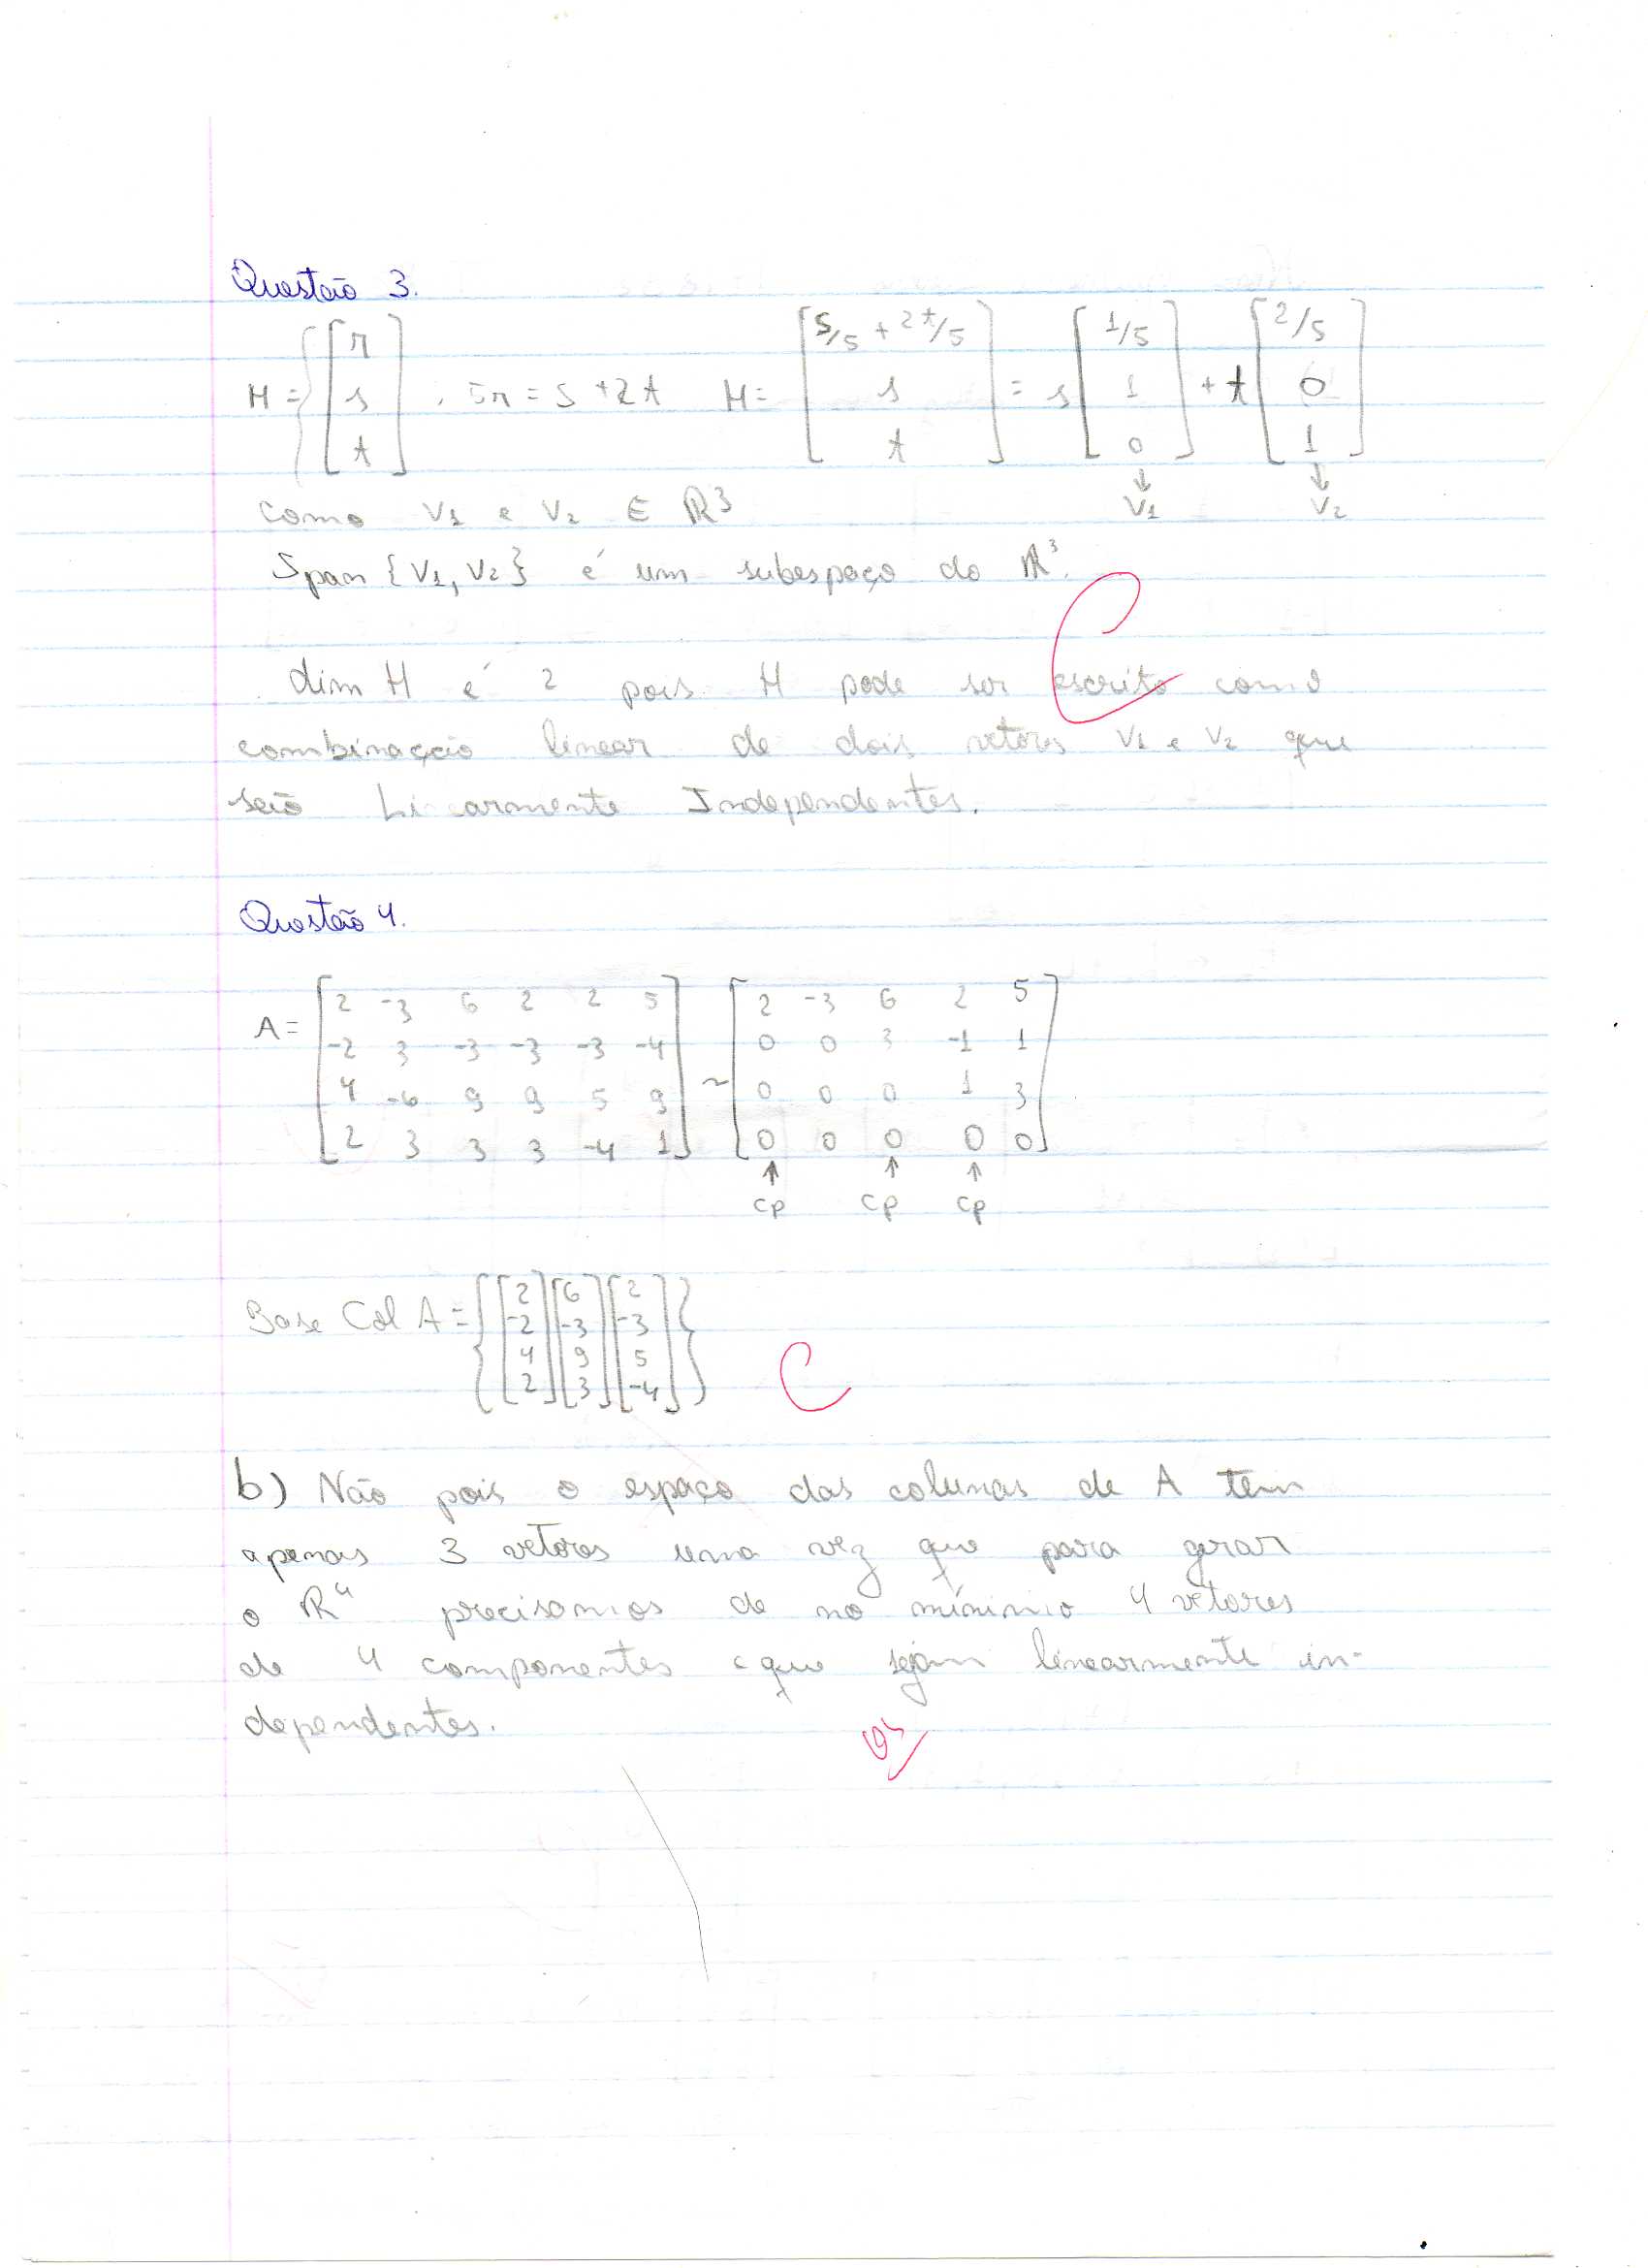 Questão 3.
H = { [ r s t ] : 5r = s + 2t   H = [ s/5 + 2t/5  s  t ] = s [ 1/5  1  0 ] + t [ 2/5  0  1 ]
↓ v1   ↓ v2
como v1 e v2 ∈ ℝ³
Span {v1, v2} é um subespaço do ℝ³.
C
dim H é 2 pois H pode ser escrito como
combinação linear de dois vetores v1 e v2 que
são Linearmente Independentes.
Questão 4.
A = [ 2 -3 6 2 2 5 ] ~ [ 2 -3 6 2 5 ]
[ -2 3 -3 -3 -3 -4 ] [ 0 0 3 -1 1 ]
[ 4 -6 9 9 5 9 ] [ 0 0 0 1 3 ]
[ 2 3 3 3 -4 1 ] [ 0 0 0 0 0 ]
↑ ↑ ↑
cp cp cp
Base Col A = { [ 2 -2 4 2 ] [ 6 -3 9 3 ] [ 2 -3 5 -4 ] }
C
b) Não pois o espaço das colunas de A tem
apenas 3 vetores uma vez que para gerar
o ℝ⁴ precisamos de no mínimo 4 vetores
de 4 componentes que sejam linearmente in-
dependentes.